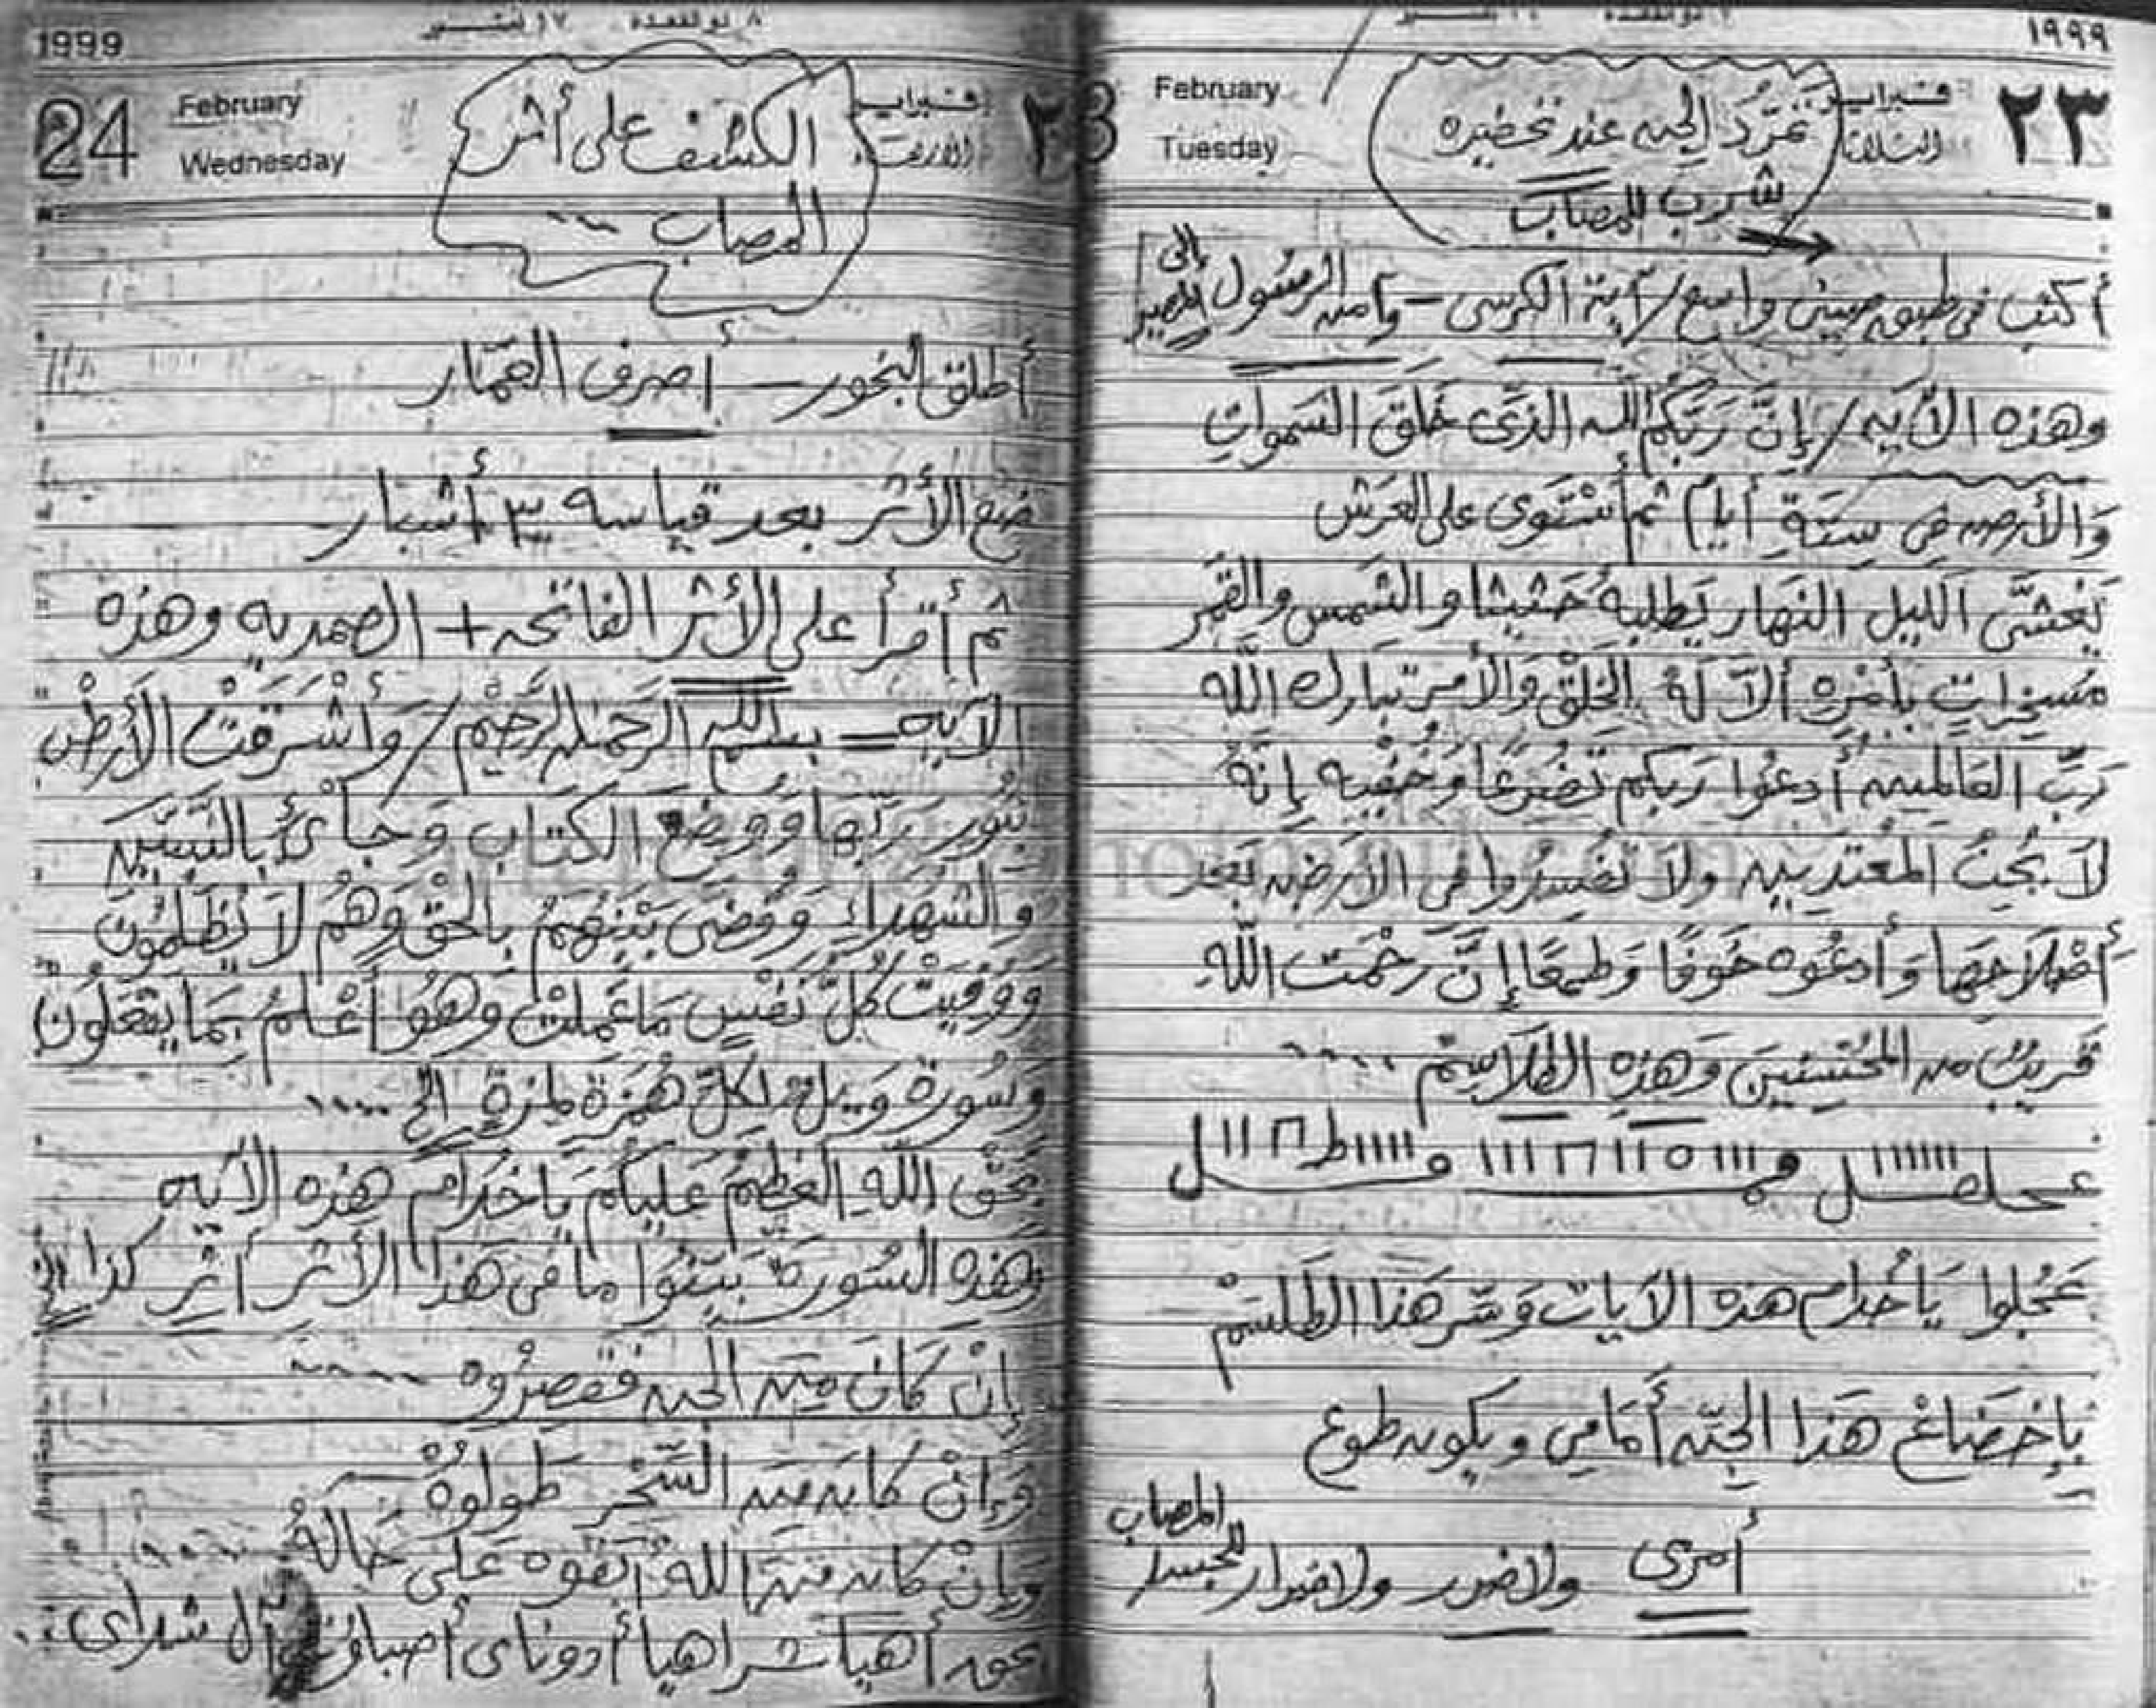 ١٩٩٩
٢٣
فبراير
الثلاثاء
February
Tuesday
تمَرُّد الجن عند تحضيره
شرب للمصاب
أكتب فى طبق صينى واسع / آية الكرسى – وآمن الرسول إلى المصير
وهذه الآيه / إنَّ رَبَّكُم الله الذَّى خَلَقَ السَموات
وَالأرض فى سِتَةِ أيام ثم أسْتَوى على العَرَش
يَغشَّى الَليل النَهار يَطلبهُ حَثيثا والشَمس والقَمَر
مُسَخرات بأمْره ألاَ لَهُ الخَلْق وَالأمر تبارك الله
رَبُّ العَالمين أدعُوا رَبكم تَضرعًا وَخُفيه إنَهُ
لاَ يُحِبُ المُعْتَديين ولاَ تُفسِدُوا فى الأرض بَعد
أصْلاَحهَا وَأدعُوه خَوفًا وَطمعًا إنَّ رَحْمَت اللهِ
قَريبُ من المُحْسِنينَ وَهَذِهِ الطَلاَسِمْ
عَجْلوا يَاخُدام هذه الآيات وَسَر هَذا الطَلسَمْ
بِإخضَاعْ هَذا الجِنّ أمَامِى ويكون طوع
أمرى ولا ضرر ولا ضرار لجسد المصاب
1999
24
February
Wednesday
فبراير
الأربعاء
الكشف على أثر
المصاب
أطلق البخور – أصرف العمّار
ضع الأثر بعد قياسه ٣ أشبار
ثم أقرأ على الأثر الفاتحه + الصمديه وهذه
الآيه – بسم الله الرَحمن الرَحِيْم / وَأشْرَقَتْ الأرْضْ
بنُور رَبَّها وَوضِعَ الكتَاب وَجائُ بالنَبيَّين
والشُهَداءِ وَقُضى بَيْنَهُمْ بالحَقِ وَهُمْ لاَ يُظَلمُونَ
وَوُفيَتْ كُلّ نَفْسٍ مَا عَمِلتْ وَهُوَ أعْلمُ بمَا يَفعَلُونَ
وَسُورة وَيلُ لِكلّ هُمَزة لمزةِ الخ
بَحَق اللهِ العَظيْم عَليكُم يَاخُدام هَذِه الآيه
وهَذهِ السُورة بَيَنُوا ما فى هَذا الأثر أثر كذا
إنْ كَانَ مَنْ الجن فقصرُوه
وَإنْ كان من السَحْر طولوهُ
وَإنْ كان من الله أبقوه عَلى حَالهُ
بحق أهيا شراهيا أدوناى أصباؤت آل شداى